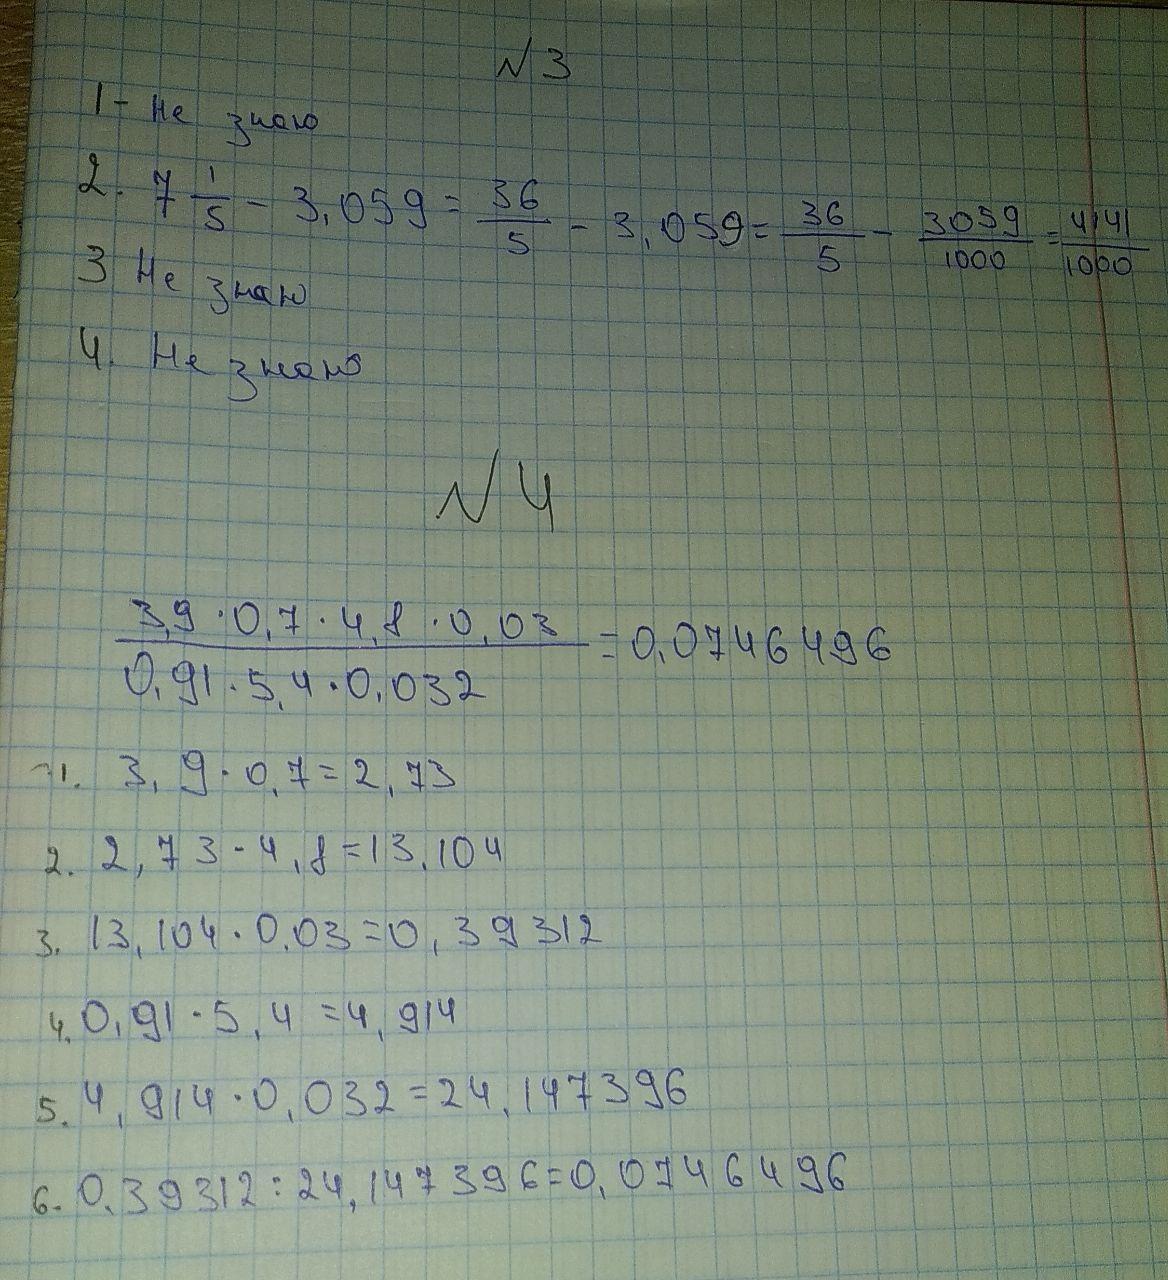 №3
1 - Не знаю
2. 7 1/5 - 3,059 = 36/5 - 3,059 = 36/5 - 3059/1000 = 4141/1000
3 Не знаю
4. Не знаю
№4
3,9 · 0,7 · 4,8 · 0,03 / 0,91 · 5,4 · 0,032 = 0,0746496
1. 3,9 · 0,7 = 2,73
2. 2,73 · 4,8 = 13,104
3. 13,104 · 0,03 = 0,39312
4. 0,91 · 5,4 = 4,914
5. 4,914 · 0,032 = 24,147396
6. 0,39312 : 24,147396 = 0,0746496